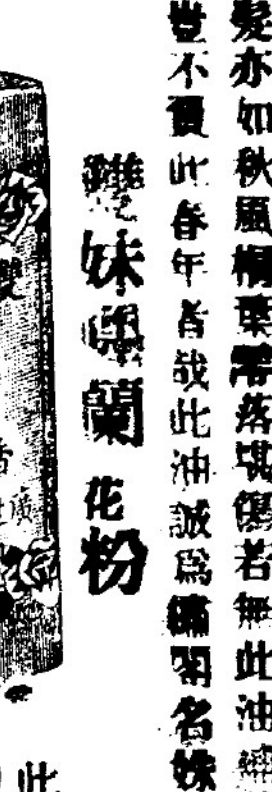 髮亦如秋風桐葉零落堪傷若無此油
豈不負此春年者哉此油誠為繡閣名姝
妹嘜蘭花粉
此